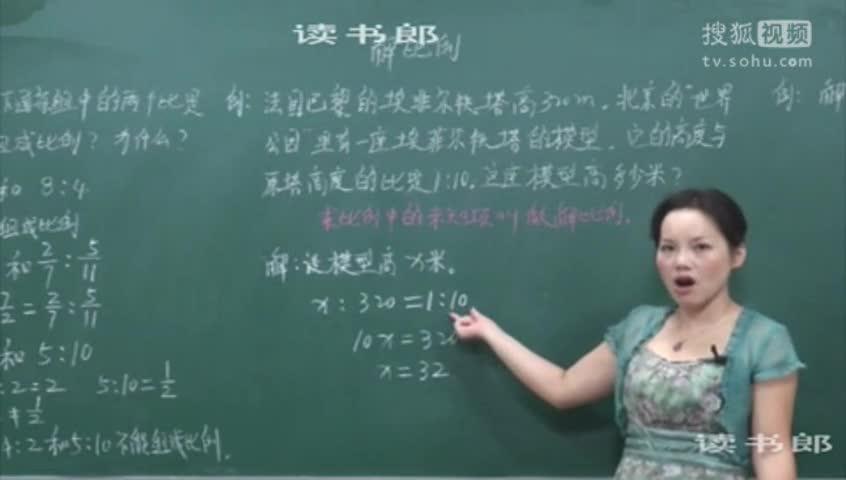 读书郎
解比例
搜狐视频
tv.sohu.com
下面每组中的两个比是
组成比例？为什么？
和 8:4
组成比例
和 2/7 : 5/11
= 2/7 : 5/11
和 5:10
:2=2 5:10=1/2
≠ 1/2
4:2和5:10不能组成比例。
例：法国巴黎的埃菲尔铁塔高320m，北京的“世界
公园”里有一座埃菲尔铁塔的模型，它的高度与
原塔高度的比是1:10。这座模型高多少米？
求比例中的未知项叫做解比例。
解：设模型高x米。
x:320=1:10
10x=32
x=32
例：解
读书郎